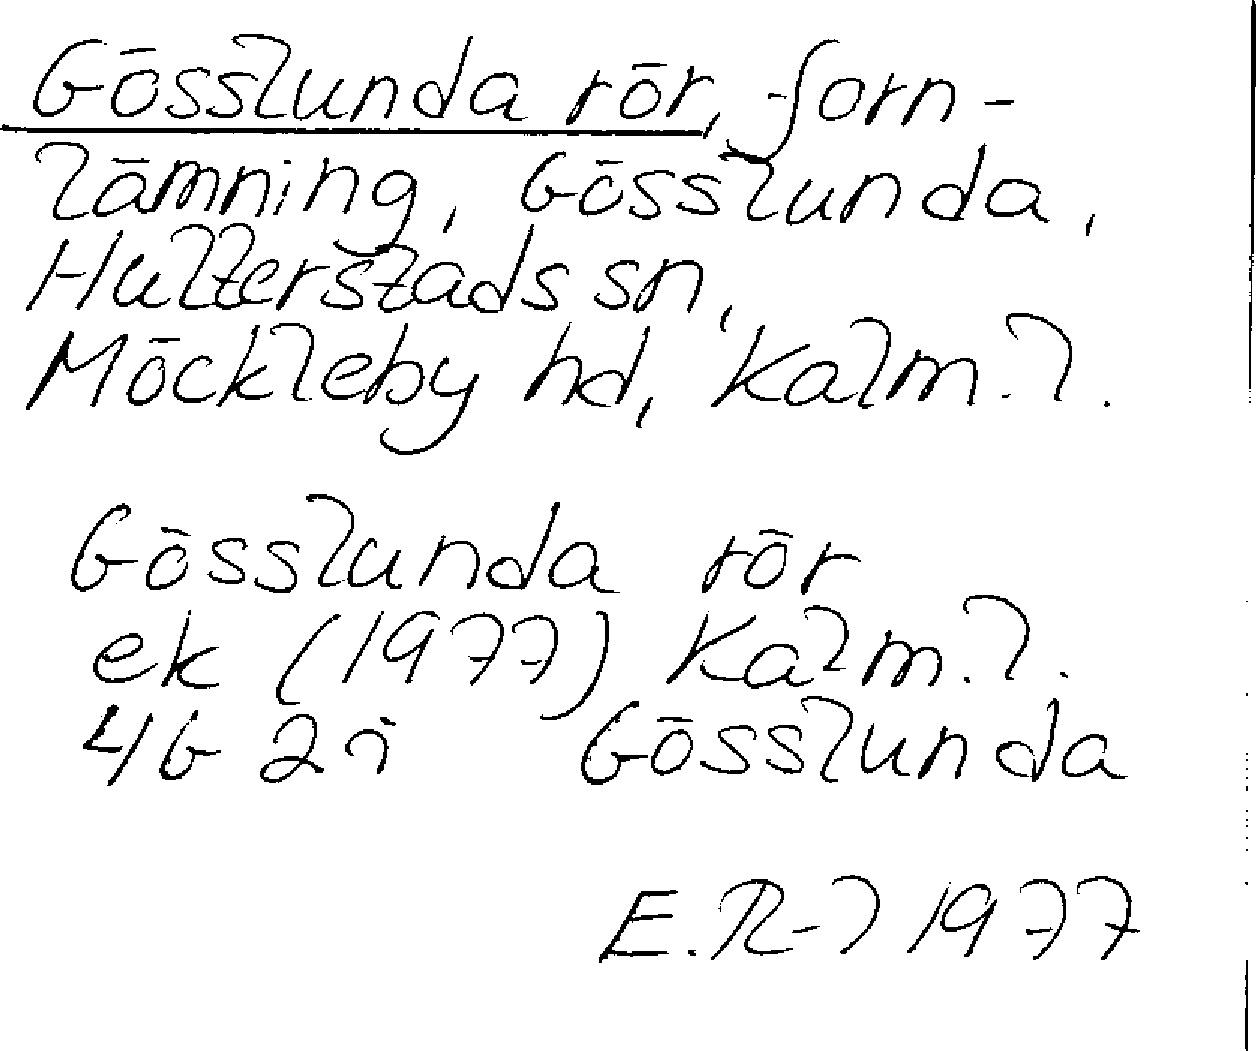 Gösslunda rör, forn-
lämning, Gösslunda,
Hulterstads sn,
Möckleby hd, Kalm. l.
Gösslunda rör
ek (1977) Kalm. l.
4G 2i Gösslunda
E.R-l 1977